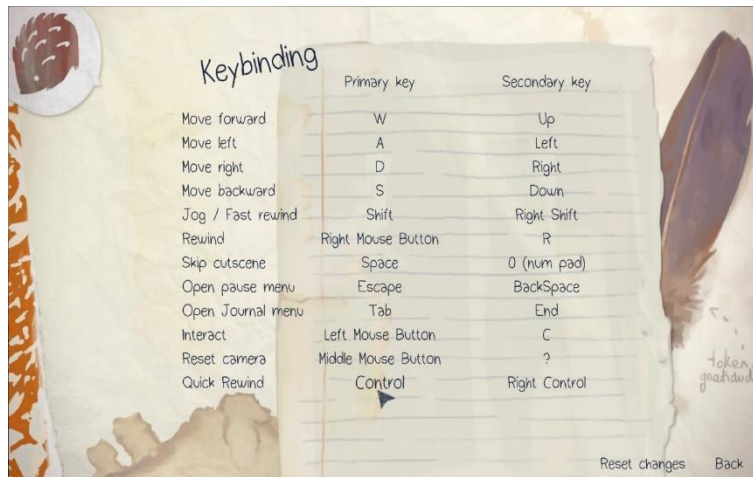 Keybinding
Primary key Secondary key
Move forward W Up
Move left A Left
Move right D Right
Move backward S Down
Jog / Fast rewind Shift Right Shift
Rewind Right Mouse Button R
Skip cutscene Space 0 (num pad)
Open pause menu Escape BackSpace
Open Journal menu Tab End
Interact Left Mouse Button C
Reset camera Middle Mouse Button ?
Quick Rewind Control Right Control
Reset changes Back